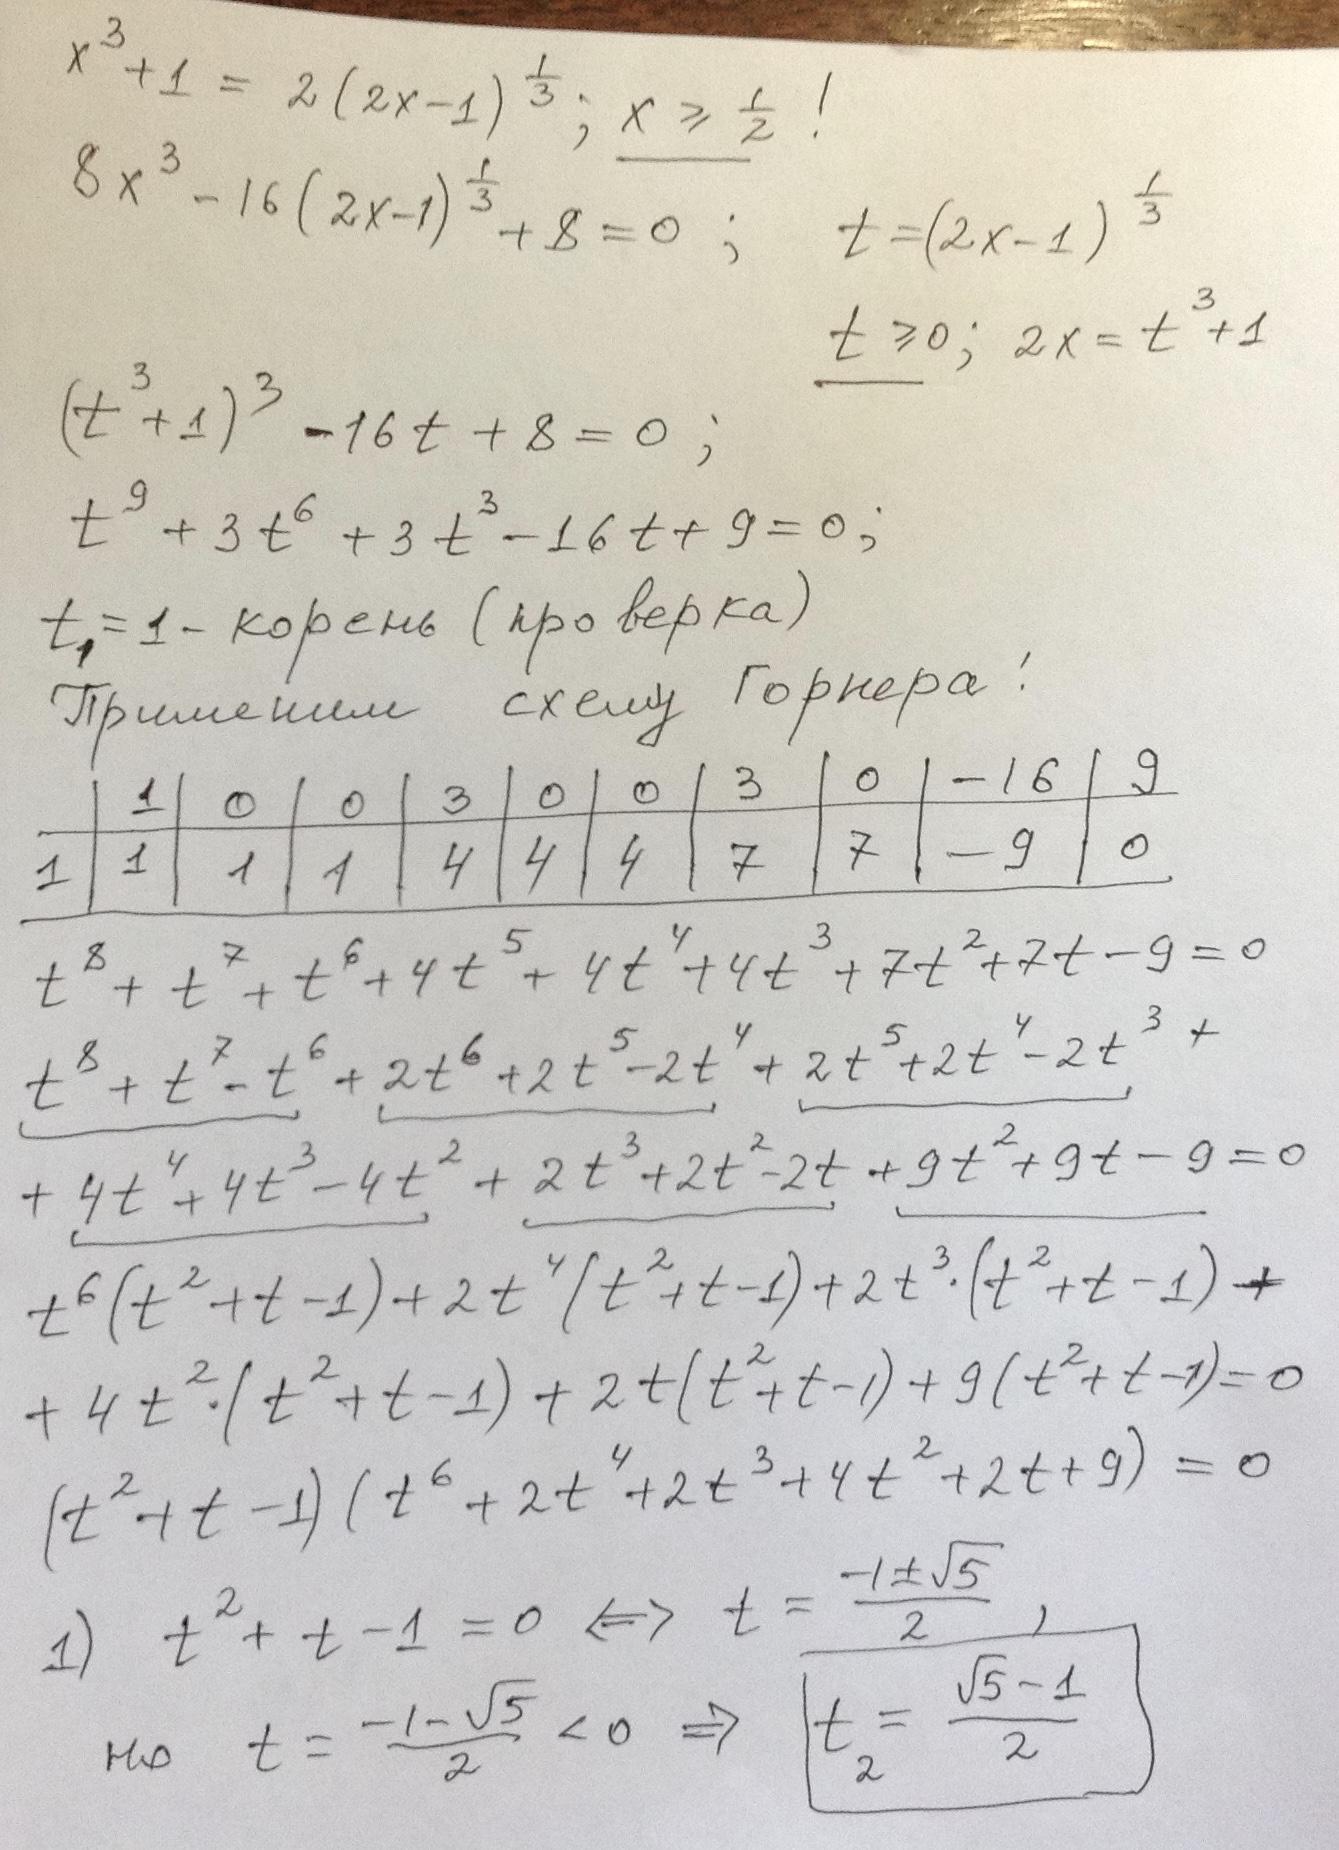 x³+1 = 2(2x−1)^{1/3}; x ⩾ 1/2 !
8x³ − 16(2x−1)^{1/3} + 8 = 0; t = (2x−1)^{1/3}
t ⩾ 0; 2x = t³+1
(t³+1)³ − 16t + 8 = 0;
t⁹ + 3t⁶ + 3t³ − 16t + 9 = 0;
t₁ = 1 − корень (проверка)
Применим схему Горнера!
| 1 | 0 | 0 | 3 | 0 | 0 | 3 | 0 | −16 | 9
1 | 1 | 1 | 1 | 4 | 4 | 4 | 7 | 7 | −9 | 0
t⁸ + t⁷ + t⁶ + 4t⁵ + 4t⁴ + 4t³ + 7t² + 7t − 9 = 0
t⁸ + t⁷ − t⁶ + 2t⁶ + 2t⁵ − 2t⁴ + 2t⁵ + 2t⁴ − 2t³ +
+ 4t⁴ + 4t³ − 4t² + 2t³ + 2t² − 2t + 9t² + 9t − 9 = 0
t⁶(t² + t − 1) + 2t⁴(t² + t − 1) + 2t³·(t² + t − 1) +
+ 4t²·(t² + t − 1) + 2t(t² + t − 1) + 9(t² + t − 1) = 0
(t² + t − 1)(t⁶ + 2t⁴ + 2t³ + 4t² + 2t + 9) = 0
1) t² + t − 1 = 0 ⟺ t = (−1±√5)/2,
но t = (−1−√5)/2 < 0 ⇒ t₂ = (√5−1)/2